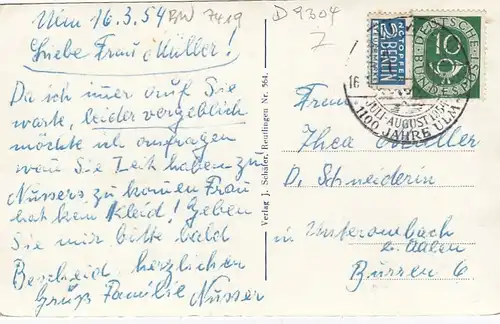 Ulm 16.3.54
BW 7419
D 9304
Z
Liebe Frau Müller!
Da ich imer auf Sie
warte, leider vergeblich
möchte ich anfragen
wan Sie Zeit haben zu
Nussers zu komen Frau
hat kein Kleid! Geben
Sie mir bitte bald
Bescheid herzlichen
Gruß Familie Nusser
Verlag J. Schäfer, Reutlingen Nr. 564
NOTOPFER
2 BERLIN
STEUERMARKE
DEUTSCHE BUNDESPOST
10
16
JULI-AUGUST 1954
100 JAHRE ULM
Frau
Thea Müller
D. Schneiderin
in Unterombach
b. Aalen
Burren 6